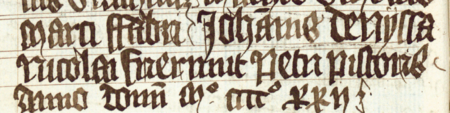 marci ffabri Johanis de nyssa
Nicolai ffrermut Petri pistoris
Anno domi mº ccccº xxij